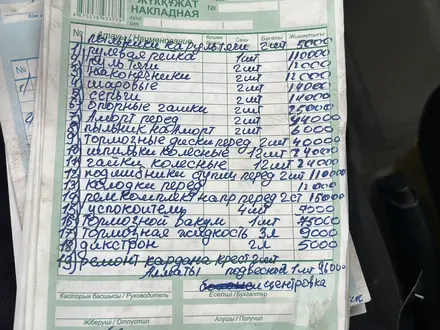 ЖҮКҚҰЖАТ
НАКЛАДНАЯ
№ Атауы / Наименование Саны Бағасы Жиынтығы
1) пыльники на рультяги 2шт 5000
2) рулевая рейка 1шт 110000
3) рультяги 2шт 12000
4) наконечники 2шт 12000
5) шаровые 2шт 14000
серьги 2шт 14000
6) опорные чашки 2шт 25000
7) Аморт перед 2шт 94000
8) пыльник на Аморт 2шт 6000
9) тормозные диски перед 2шт 40000
10) шпильки колесные 12шт 24000
11) гайки колесные 12шт 24000
12) подшибники ступиц перед 2шт 110000
13) колодки перед 12000
14) ремкомплект напр перед 2шт 15000
15) успокоитель 4шт 7000
16) тормозной вакум 1шт 45000
17) тормозная жидкость 3л 9000
18) дикстрон 2л 5000
19) ремонт кардана крест 2шт
Алматы подвесной 1шт 96000
центровка
Кәсіпорын басшысы / Руководитель
Есепші / Бухгалтер
Жіберуші / Отпустил
Алушы / Получил